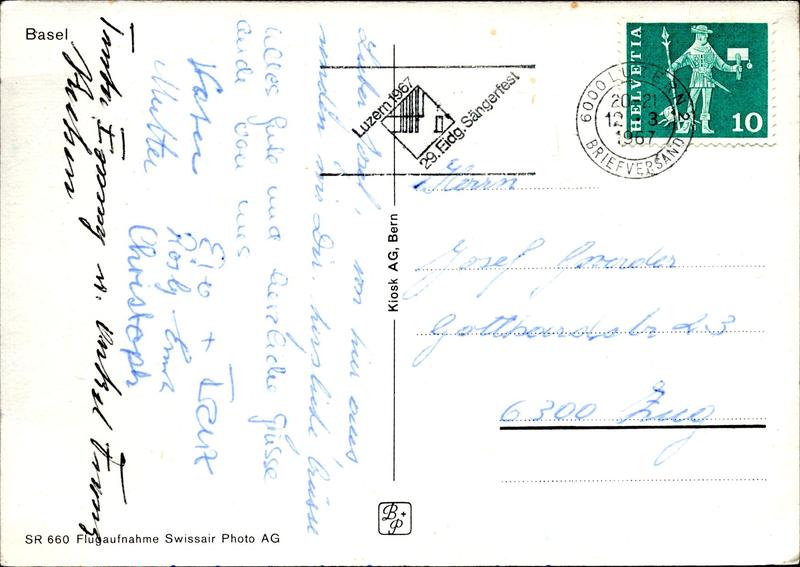 Basel
HELVETIA
10
6000 LUZERN 2
20-21
12. 3.
1967
BRIEFVERSAND
Luzern 1967
29. Eidg. Sängerfest
Lieber Josef, von hier aus
senden wir Dir herzliche Grüsse
Alles Gute und herzliche Grüsse
auch von uns
Vater
Mutter
+ Franz
Rosly
Christoph
Tante Fanny u. Onkel Franz
Kiosk AG, Bern
Herrn
Josef
Gotthardstr 23
6300 Zug
B+P
SR 660 Flugaufnahme Swissair Photo AG